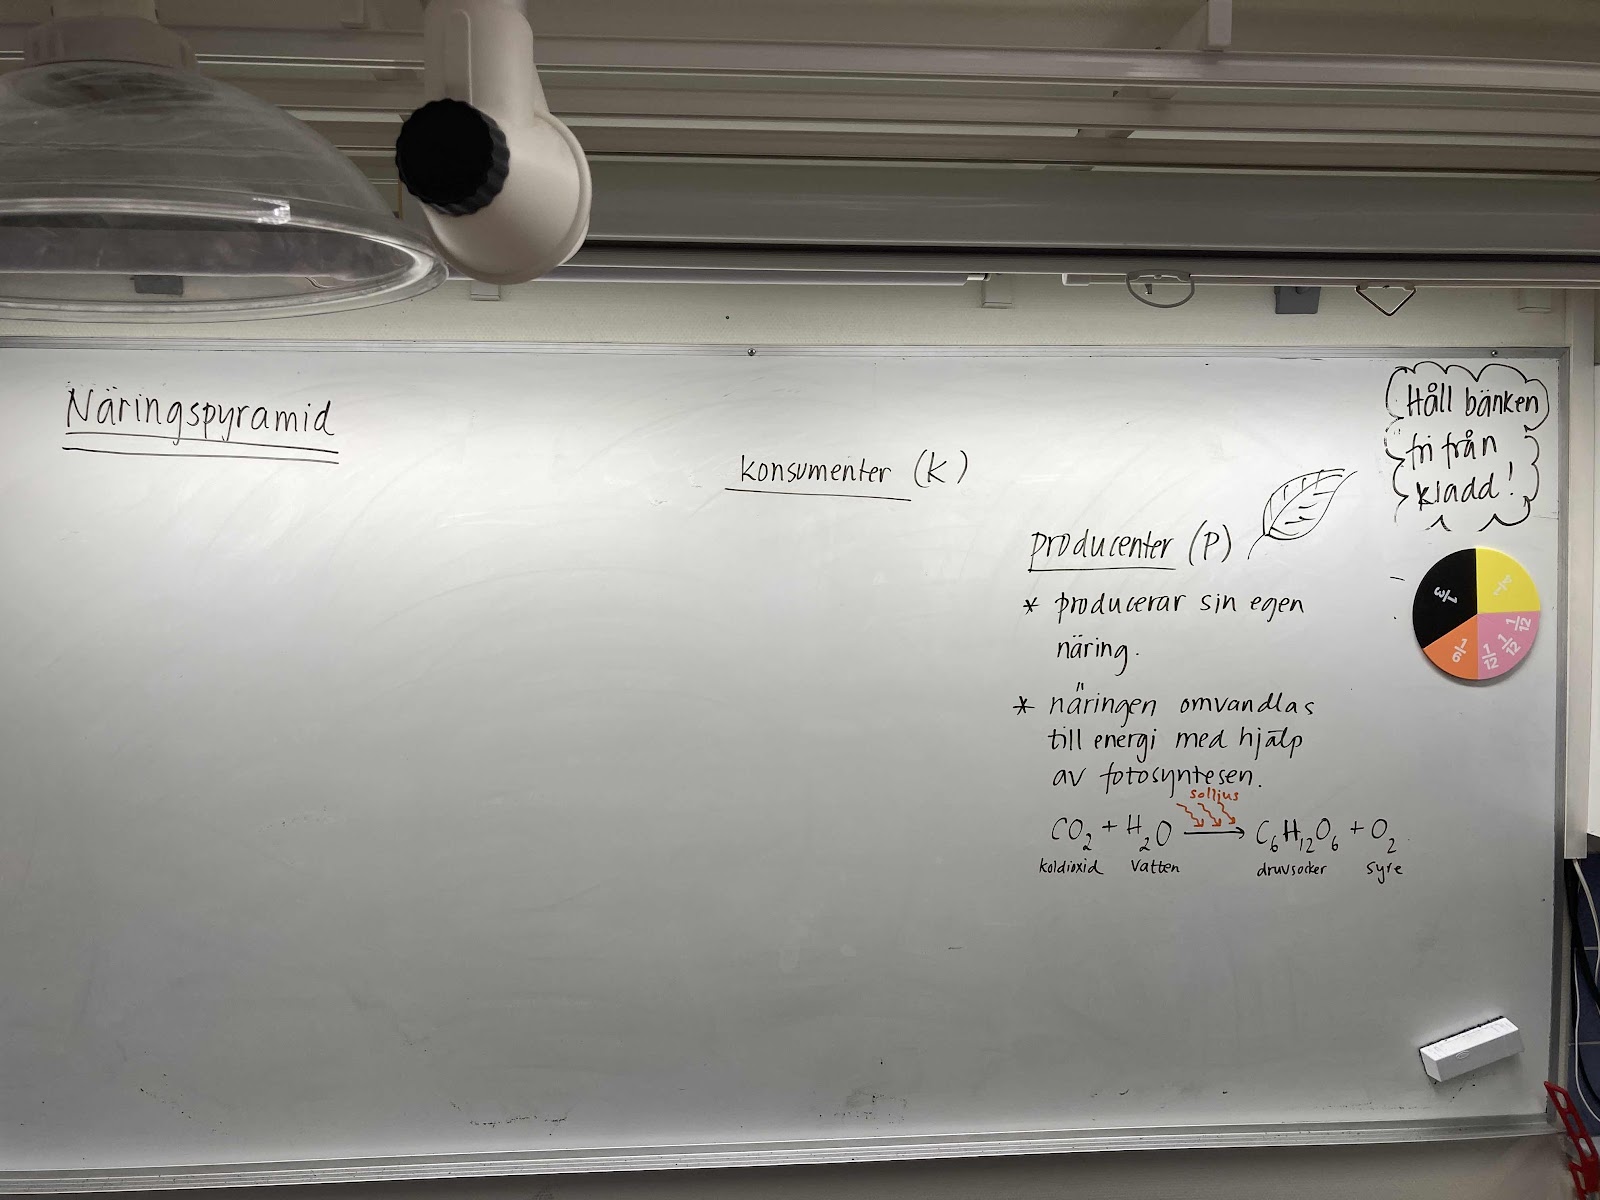 Näringspyramid
konsumenter (k)
producenter (p)
* producerar sin egen
näring.
* näringen omvandlas
till energi med hjälp
av fotosyntesen.
solljus
CO₂ + H₂O → C₆H₁₂O₆ + O₂
koldioxid vatten druvsocker syre
Håll bänken
fri från
kladd!
1/3
1/4
1/12
1/12
1/12
1/6